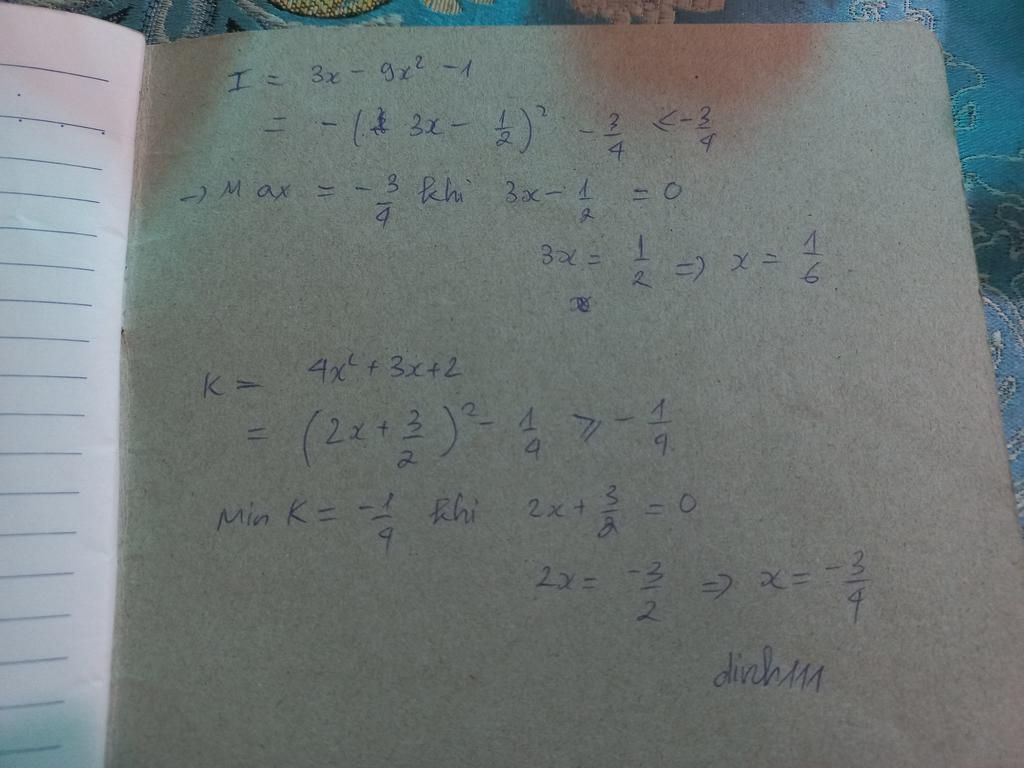 I = 3x - 9x² - 1
= - ( 3x - 1/2 )² - 3/4 ≤ - 3/4
→ Max = - 3/4 khi 3x - 1/2 = 0
3x = 1/2 => x = 1/6
K = 4x² + 3x + 2
= ( 2x + 3/2 )² - 1/4 ≥ - 1/4
Min K = - 1/4 khi 2x + 3/2 = 0
2x = -3/2 => x = -3/4
dinh111